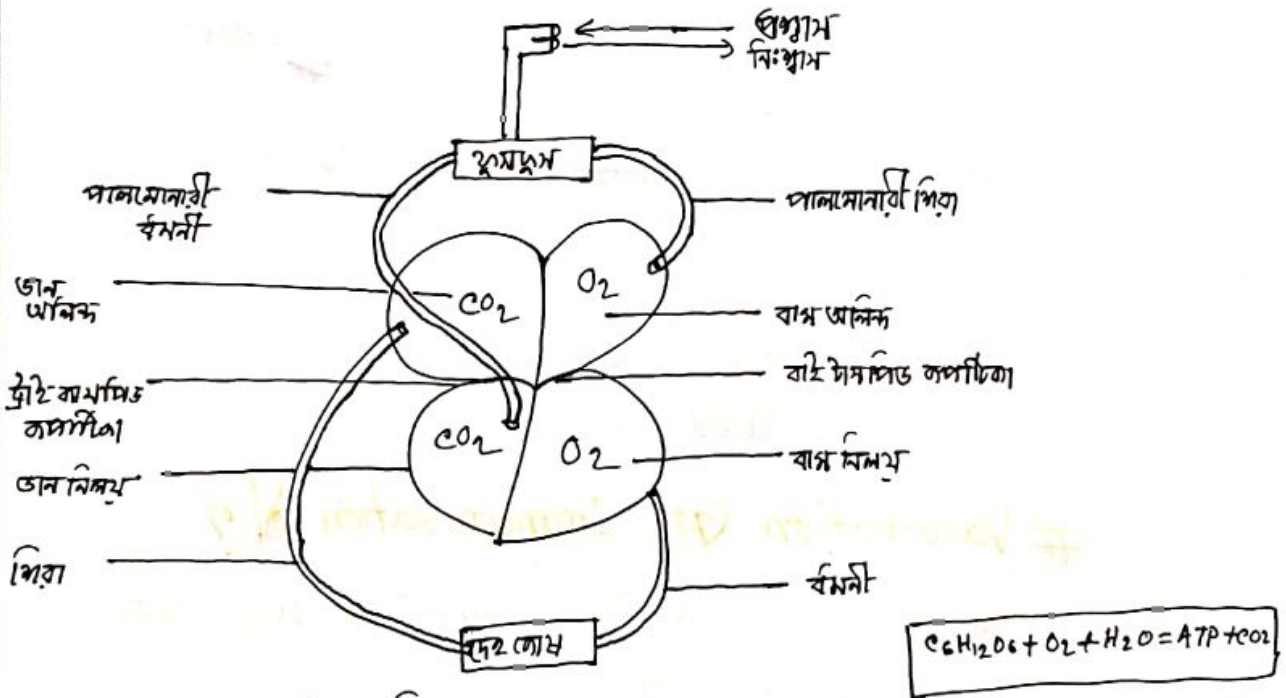 প্রশ্বাস
নিঃশ্বাস
ফুসফুস
পালমোনারী
ধমনী
পালমোনারী শিরা
ডান
অলিন্দ
CO2
O2
বাম অলিন্দ
ট্রাই কাসপিড
কপাটিকা
বাই কাসপিড কপাটিকা
CO2
O2
ডান নিলয়
বাম নিলয়
শিরা
ধমনী
দেহ কোষ
C6H12O6 + O2 + H2O = ATP + CO2